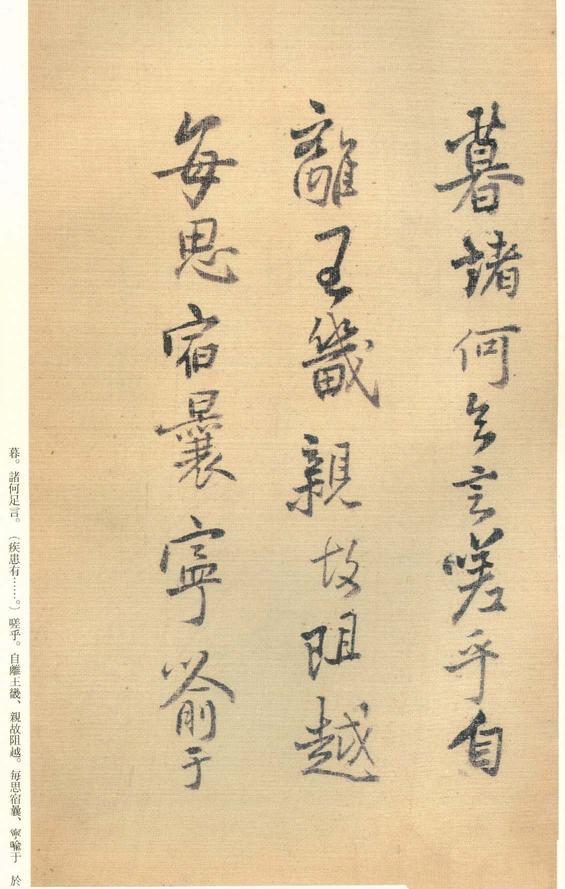 暮諸何足言嗟乎自
離王畿親故阻越
每思宿曩寧喻于
暮。諸何足言。（疾患有……。）嗟乎。自離王畿、親故阻越。每思宿曩、寧喻于 於